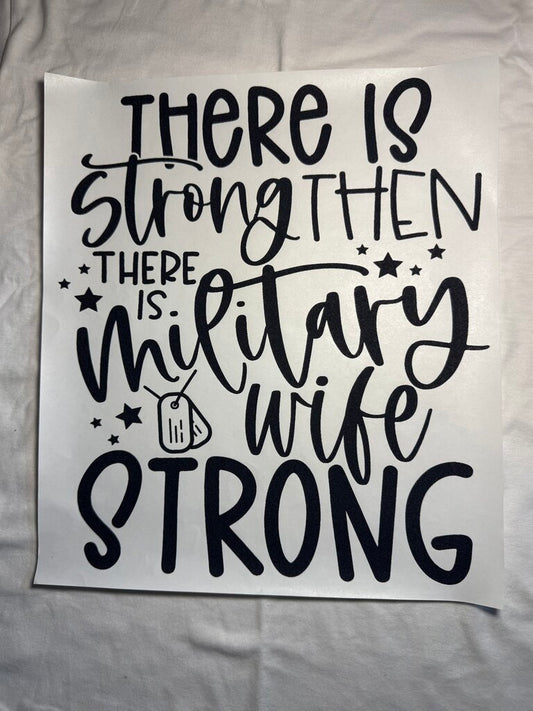 THERE IS
strong THEN
THERE
IS
military
wife
STRONG